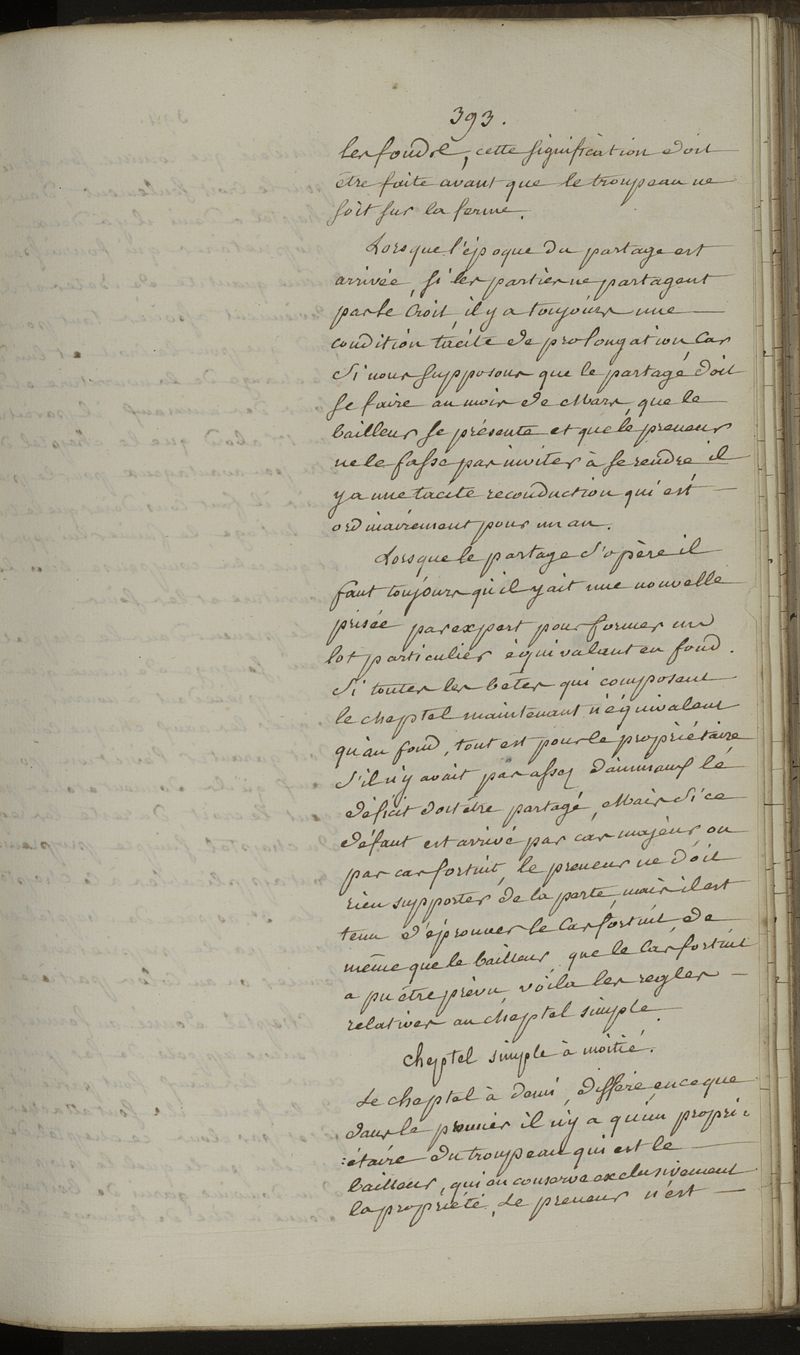 393.
les fonds, cette signification doit
être faite avant que le troupeau ne
soit sur la ferme.
Lorsque l'époque du partage est
arrivée, si les parties ne partagent
pas le Croit, il y a toujours une
condition tacite de prolongation, Car
si nous supposons que le partage doit
se faire au mois de Mars, que le
bailleur se présente et que le preneur
ne le fasse pas inviter à se rendre il
y a une tacite reconduction qui est
ordinairement pour un an.
Lorsque le partage s'opère il
faut toujours qu'il y ait une nouvelle
prisée par expert pour former un
lot particulier équivalant en fond.
Si toutes les bêtes qui composent
le cheptel maintenant n'équivalent
qu'au fond, tout est pour le propriétaire
S'il n'y avait pas assez d'animaux le
déficit doit être partagé, Mais si ce
défaut est arrivé par cas majeur ou
par cas fortuit, le preneur ne doit
rien supporter de la perte, mais il est
tenu d'éprouver le Cas fortuit, de
même que le bailleur, que le Cas fortuit
a pu être prévu, voila les regles
relatives au cheptel simple.
Cheptel simple à moitié.
Le cheptel à demi, differe en ce que
dans le premier il n'y a qu'un propri
:étaire du troupeau qui est le
bailleur, qui en conserve exclusivement
la propriété, Le preneur n'est